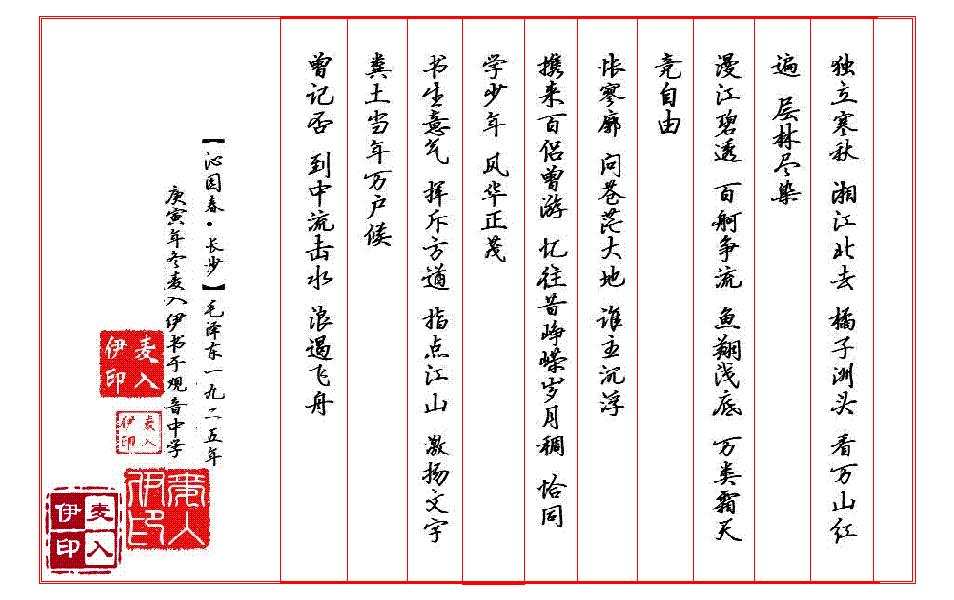 独立寒秋 湘江北去 橘子洲头 看万山红
遍 层林尽染
漫江碧透 百舸争流 鱼翔浅底 万类霜天
竞自由
怅寥廓 问苍茫大地 谁主沉浮
携来百侣曾游 忆往昔峥嵘岁月稠 恰同
学少年 风华正茂
书生意气 挥斥方遒 指点江山 激扬文字
粪土当年万户候
曾记否 到中流击水 浪遏飞舟
【沁园春·长沙】毛泽东一九二五年
庚寅年冬麦入伊书于观音中学
麦入
伊印
麦入
伊印
麦入
伊印
麦入
伊印